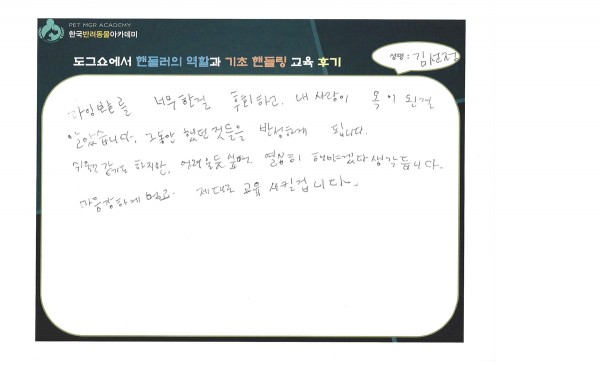 PET MGR ACADEMY
한국반려동물아카데미
도그쇼에서 핸들러의 역할과 기초 핸들링 교육 후기
성명 : 김선정
과잉보호를 너무한걸 후회하고, 내 사랑이 독이 된걸
알았습니다. 그동안 했던 것들을 반성하게 됩니다.
쉬울것 같기도 하지만, 어려울듯 싶어 열심히 해야겠다 생각듭니다.
마음강하게 먹고 제대로 교육 시킬겁니다.